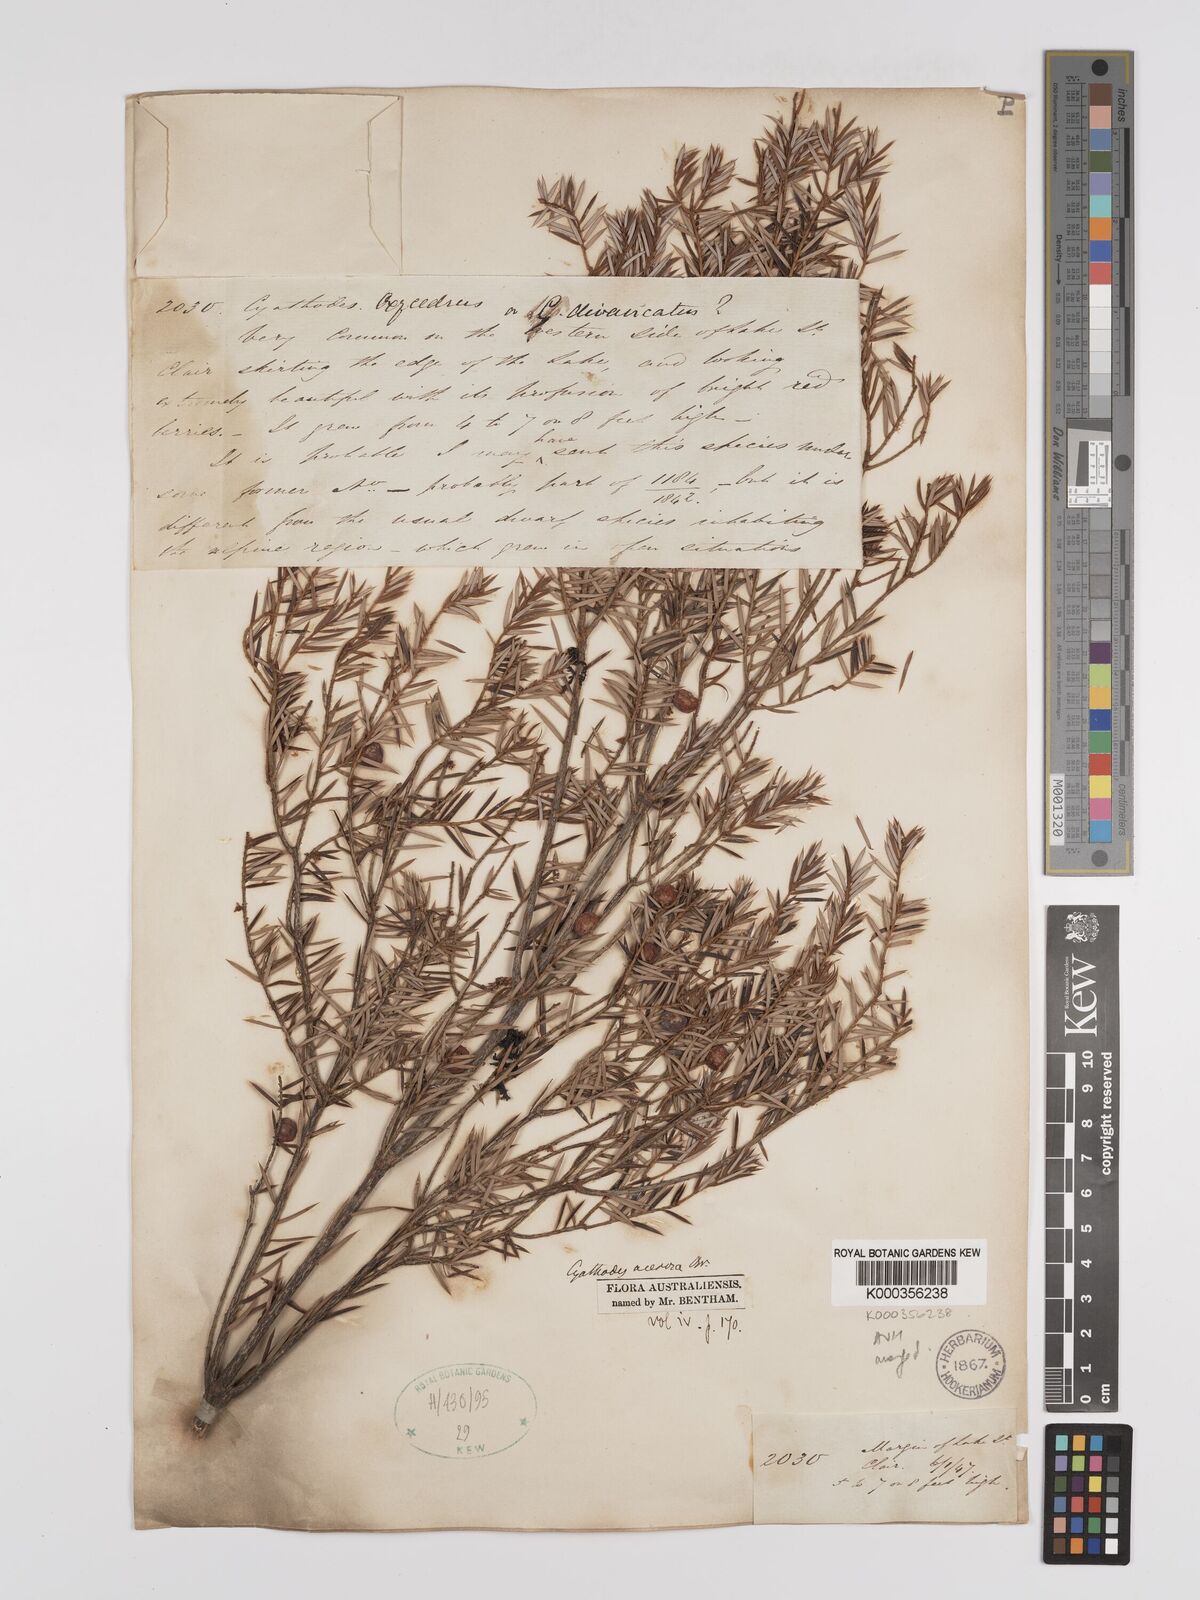 2030. Cyathodes. Oxycedrus or C. divaricatus?
Very common on the western side of Lake St.
Clair skirting the edge of the Lake, and looking
extremely beautiful with its profusion of bright red
berries. - It grew from 4 to 7 or 8 feet high -
It is probable I may have sent this species under
some former No - probably part of 1184/1842. - but it is
different from the usual dwarf species inhabiting
the alpine region - which grew in open situations
Cyathodes acerosa Br.
FLORA AUSTRALIENSIS.
named by Mr. BENTHAM.
vol iv - p. 170.
ROYAL BOTANIC GARDENS KEW
K000356238
K000356238
HERBARIUM
1867.
HOOKERIANUM
ROYAL BOTANIC GARDENS
H/430/95
29
KEW
2030 Margin of Lake St
Clair. 6/1/47.
5 to 7 or 8 feet high.
inches
centimetres
Density
Don Williams
M001320
Kew
Royal Botanic Gardens
copyright reserved
10 9 8 7 6 5 4 3 2 1 0 cm